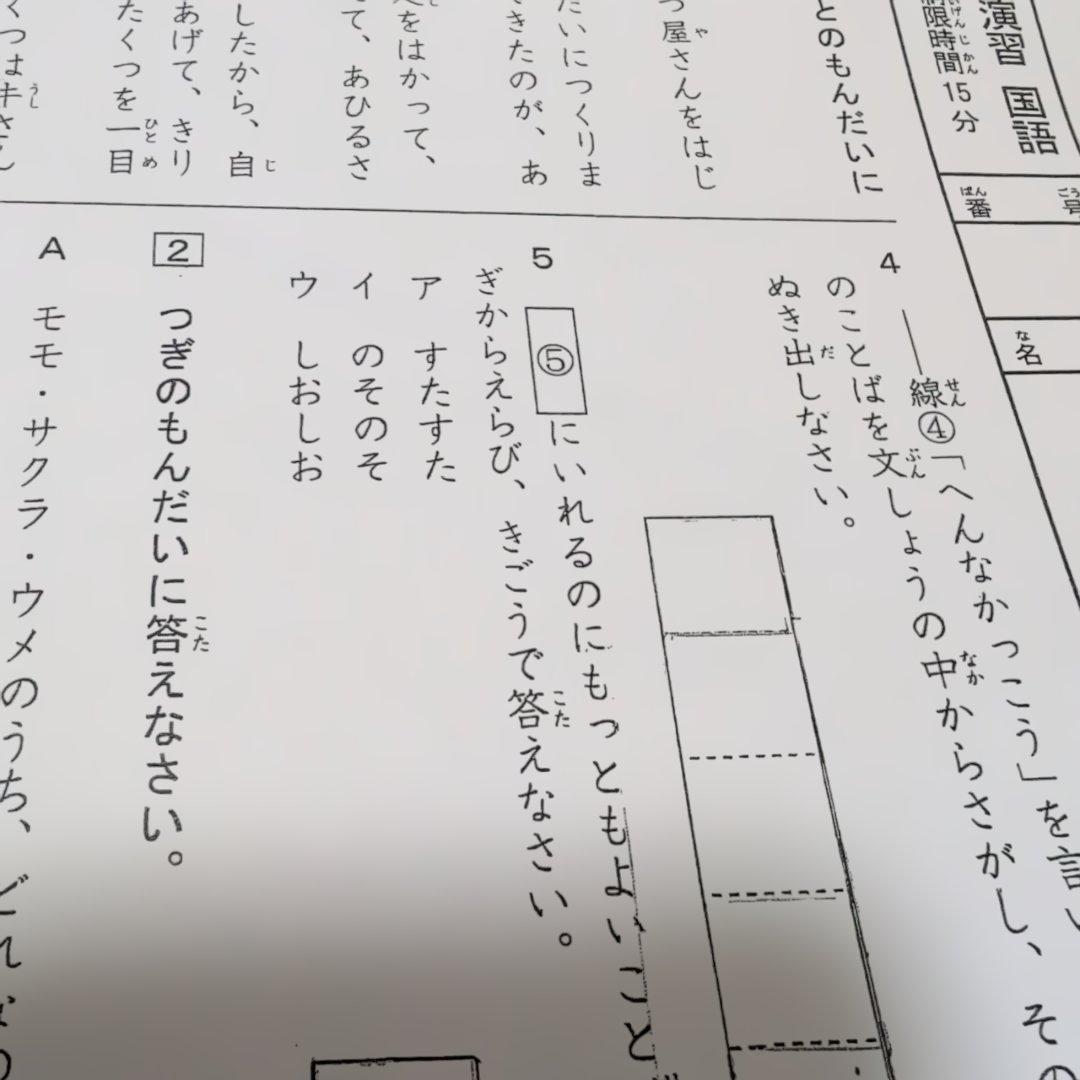 演習 国語
制限時間 15分
番号
名
とのもんだいに
つ屋さんをはじ
だいにつくりま
できたのが、あ
をはかって、
て、あひるさ
したから、自
あげて、きり
たくつを一目
くつは牛さん
4 ――線④「へんなかっこう」を言い
のことばを文しょうの中からさがし、その
ぬき出しなさい。
5 ⑤にいれるのにもっともよいことば
ぎからえらび、きごうで答えなさい。
ア すたすた
イ のそのそ
ウ しおしお
2 つぎのもんだいに答えなさい。
A モモ・サクラ・ウメのうち、どれ